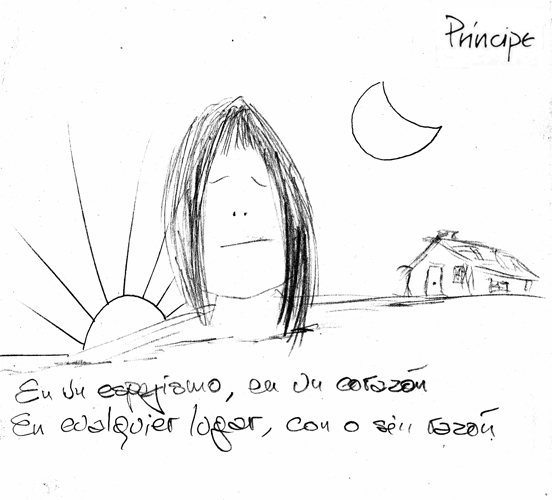 Príncipe
En un espejismo, en un corazón
En cualquier lugar, con o sin razón